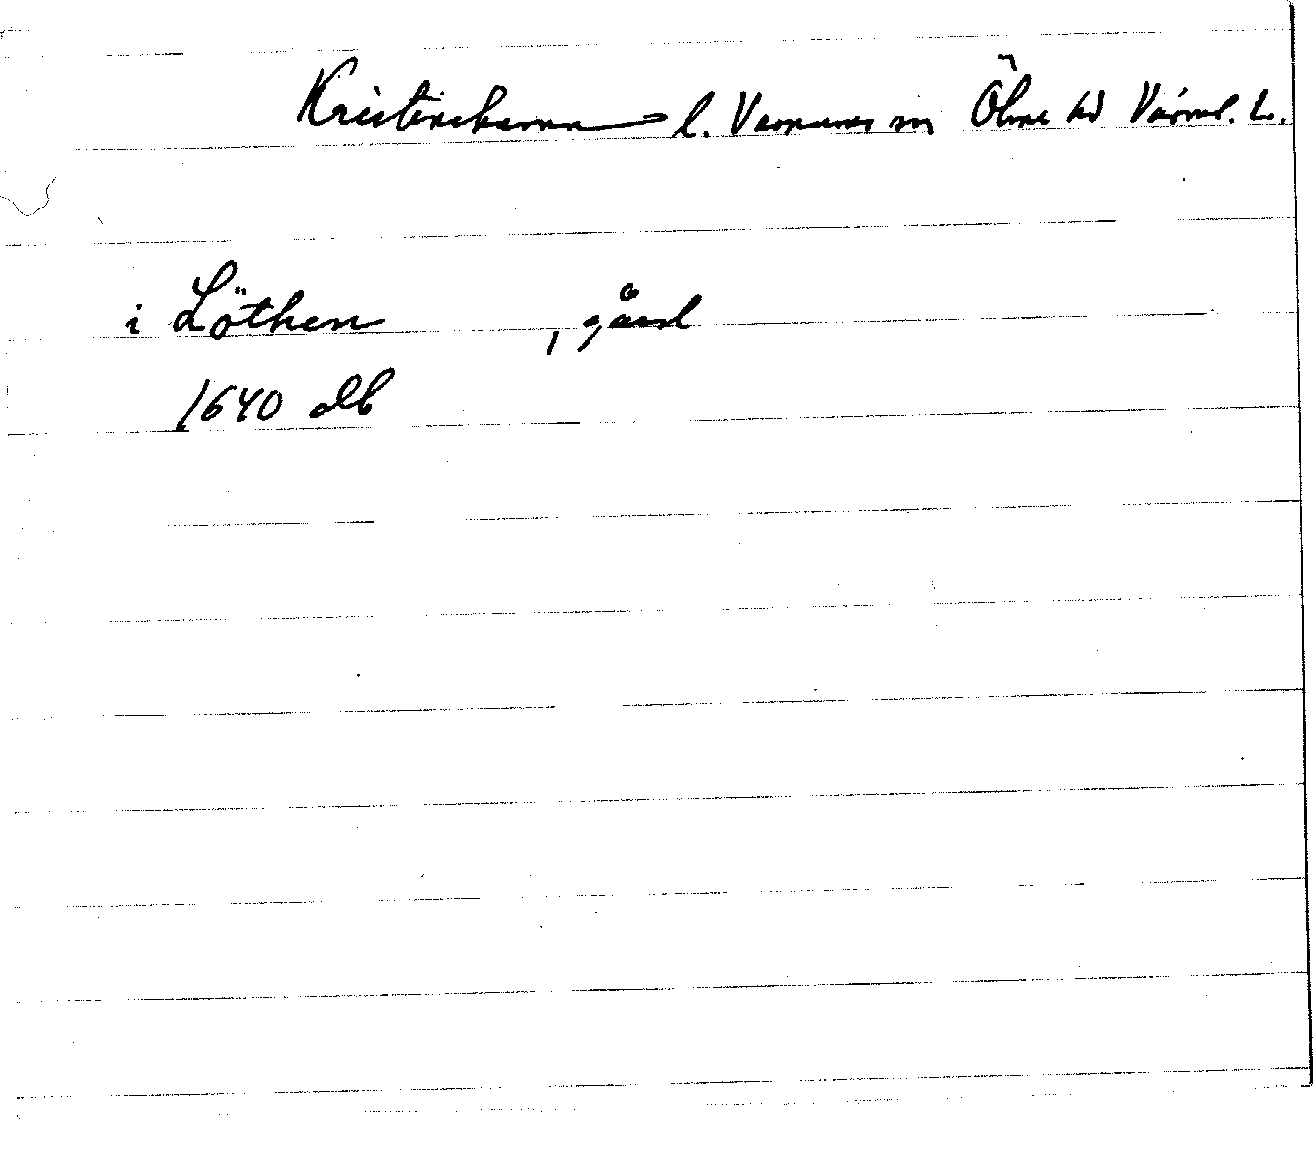 Kristinehamn l. Varnums sn Ölme hd Värml. L.
i Löthen , gård
1640 Jb